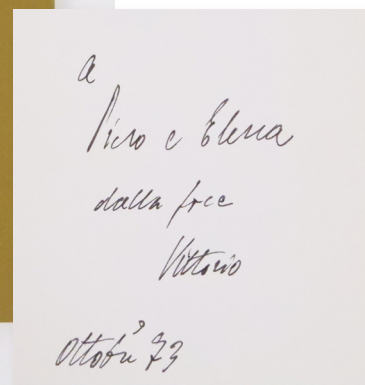 a
Piero e Elena
dalla
Vittorio
Ottobre 73